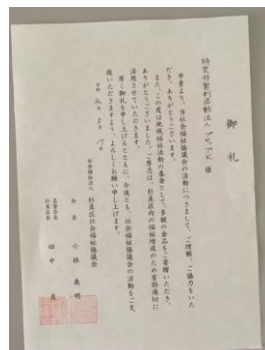 御礼
特定非営利活動法人 様
平素より、当社会福祉協議会の活動につきまして、ご理解、ご協力をいた
だき、ありがとうございます。
また、この度は地域福祉活動の基金として、多額の金品をご寄贈いただき、
ありがとうございました。ご厚志は、杉並区内の福祉増進のため有効適切に
活用させていただきます。
厚く御礼を申し上げるとともに、今後とも、社会福祉協議会の活動をご支
援いただきますよう、よろしくお願い申し上げます。
社会福祉法人 杉並区社会福祉協議会
会長 小林義明
杉並区長 田中良